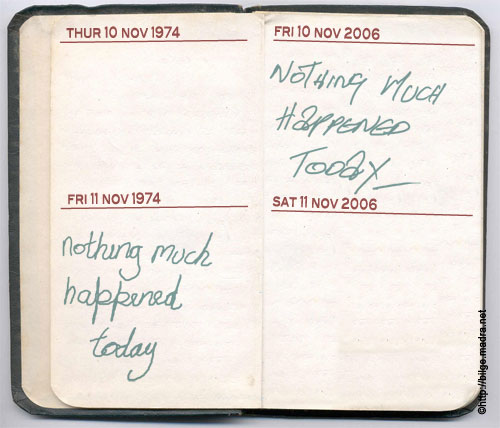 THUR 10 NOV 1974
FRI 11 NOV 1974
nothing much
happened
today
FRI 10 NOV 2006
NOTHING MUCH
HAPPENED
TODAY_
SAT 11 NOV 2006
©http://bilge.madra.net